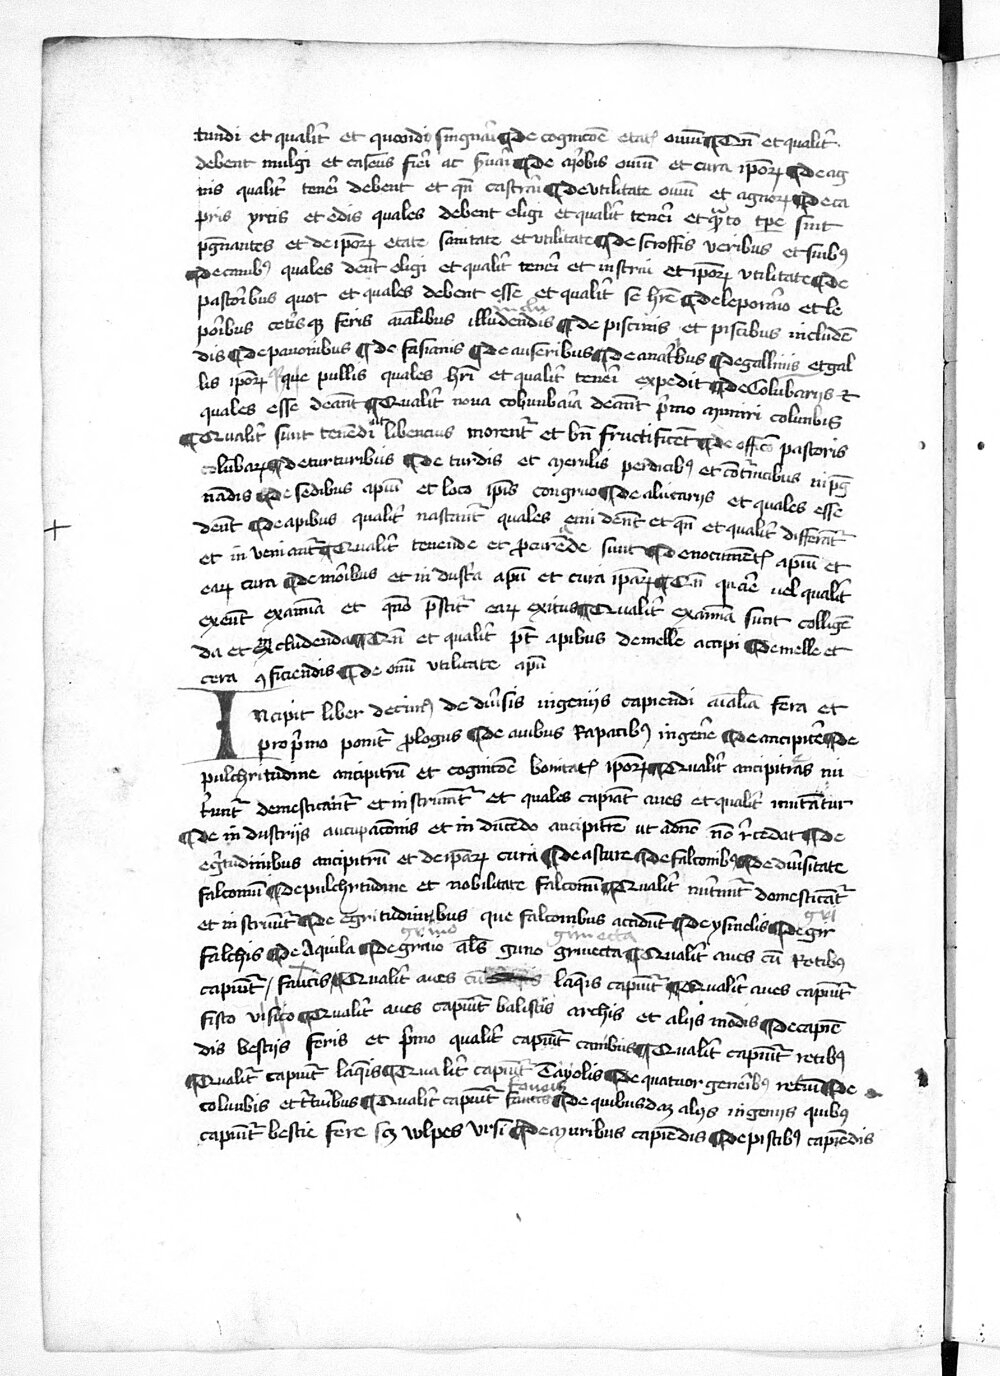 tundi et qualit̄ et quādo singnari ¶ De cognitoē etat̄ ouiū ¶ Qn̄ et qualit̄
debent mulgi et caseus fieri ac suari ¶ De morbis ouiū et cura ipoꝝ ¶ De ag
nis qualit̄ teneri debent et qn̄ castrari ¶ De utilitate ouiū et agnoꝝ ¶ De ca
pris yrcis et edis quales debent eligi et qualit̄ teneri et quāto tp̄e sint
p̄gnantes et de ipoꝝ etate sanitate et utilitate ¶ De scroffis veribus et suibꝯ
¶ De canibꝯ quales dent̄ eligi et qualit̄ teneri et instrui et ipoꝝ utilitate ¶ De
pastoribus quot et quales debent esse et qualit̄ se hr̄e ¶ De leporario et le
poribus cetisqꝫ feris aīalibus illudendis ¶ De piscinis et piscibus includen
dis ¶ De pauonibus ¶ De fasianis ¶ De anseribus ¶ De anatibus ¶ De gallinis et gal
lis ipoꝝ que pullis quales hr̄i et qualit̄ teneri expedit ¶ De Columbarijs et
quales esse debeant ¶ Qualit̄ noua columbaria debeant p̄mo muniri columbis
¶ Qualit̄ sunt tenendi ut libencius morent̄ et bn̄ fructificent ¶ De officio pastoris
columbaꝝ ¶ De turturibus ¶ De turdis et merulis perdicibꝯ et coturnicibus inpig
nādis ¶ De sedibus apiū et loco ipīs congruo ¶ De aluearijs et quales esse
dent̄ ¶ De apibus qualit̄ nascunt̄ quales emi dent̄ et qn̄ et qualit̄ differant̄
et inueniant̄ ¶ Qualit̄ tenende et procurēde sunt ¶ De nocument̄ apiū et
eaꝝ cura ¶ De moribus et industria apū et cura ipaꝝ ¶ Qn̄ quare uel qualit̄
exeunt examina et quō p̄scit̄ eaꝝ exitus ¶ Qualit̄ examina sunt collige
da et recludenda ¶ Qn̄ et qualit̄ pt̄ apibus de melle accipi ¶ De melle et
cera ꝯficiendis ¶ De omī utilitate apū
Incipit liber decimꝯ de diuīsis ingenijs capiendi aīalia fera et
pro p̄mo ponit̄ prologus ¶ De auibus Rapacibꝯ in genere ¶ De ancipitre ¶ De
pulchritudine ancipitrū et cognitoē bonitat̄ ipoꝝ ¶ Qualit̄ ancipitres nu
triunt̄ domesticant̄ et instruunt̄ et quales capiāt aues et qualit̄ mutantur
¶ De industrijs aucupacionis et inducendo ancipitrē ut a dn̄o nō recedat ¶ De
egritudinibus ancipitrū et de ipaꝝ cura ¶ De asture ¶ De falconibꝯ ¶ De diuīsitate
falconū ¶ De pulchritudine et nobilitate falconū ¶ Qualit̄ nutriunt̄ domesticant̄
et instruunt̄ ¶ De egritudinibus que falconibus accidunt ¶ De ysmelis ¶ De gir
falchis ¶ De Aquila ¶ De grauo als̄ guno griuecta ¶ Qualit̄ aues cū Retibꝯ
capiunt̄ / faucis / Qualit̄ aues laqueis capiunt̄ ¶ Qualit̄ aues capiunt̄
fisto visico ¶ Qualit̄ aues capiunt̄ balistis archis et alijs modis ¶ De capien
dis bestijs feris et p̄mo qualit̄ capiunt̄ canibus ¶ Qualit̄ capiunt̄ retibꝯ
¶ Qualit̄ capiunt̄ laqueis ¶ Qualit̄ capiunt̄ Tayolis ¶ De quatuor generibꝯ retiū ¶ De
columbis et turturibus ¶ Qualit̄ capiunt̄ faucis ¶ De quibusdaꝫ alijs ingenijs quibꝯ
capiunt̄ bestie fere scꝫ wlpes ursi ¶ De muribus capiendis ¶ De piscibꝯ capiendis